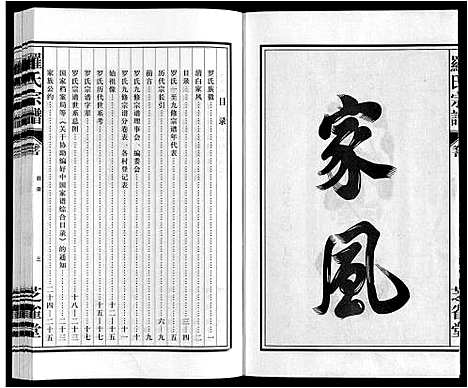 羅氏宗譜
家風
芝省堂
目录
罗氏族徽 一
清白家风 二
目录 三–四
罗氏一至九修宗谱年代表 五
历代宗长引 六–九
前言 九
罗氏九修宗谱理事会、编委会 十
罗氏九修宗谱分卷表、各村登记表 十一
始祖像 十二
罗氏历代世系考 十五–十六
罗氏宗谱字派 十七
罗氏宗谱世系总图 十八–二十三
国家档案局等《关于协助编好中国家谱综合目录》的通知 二十三
家族公约 二十四–二十五
羅氏宗譜
卷首
目录
芝省堂